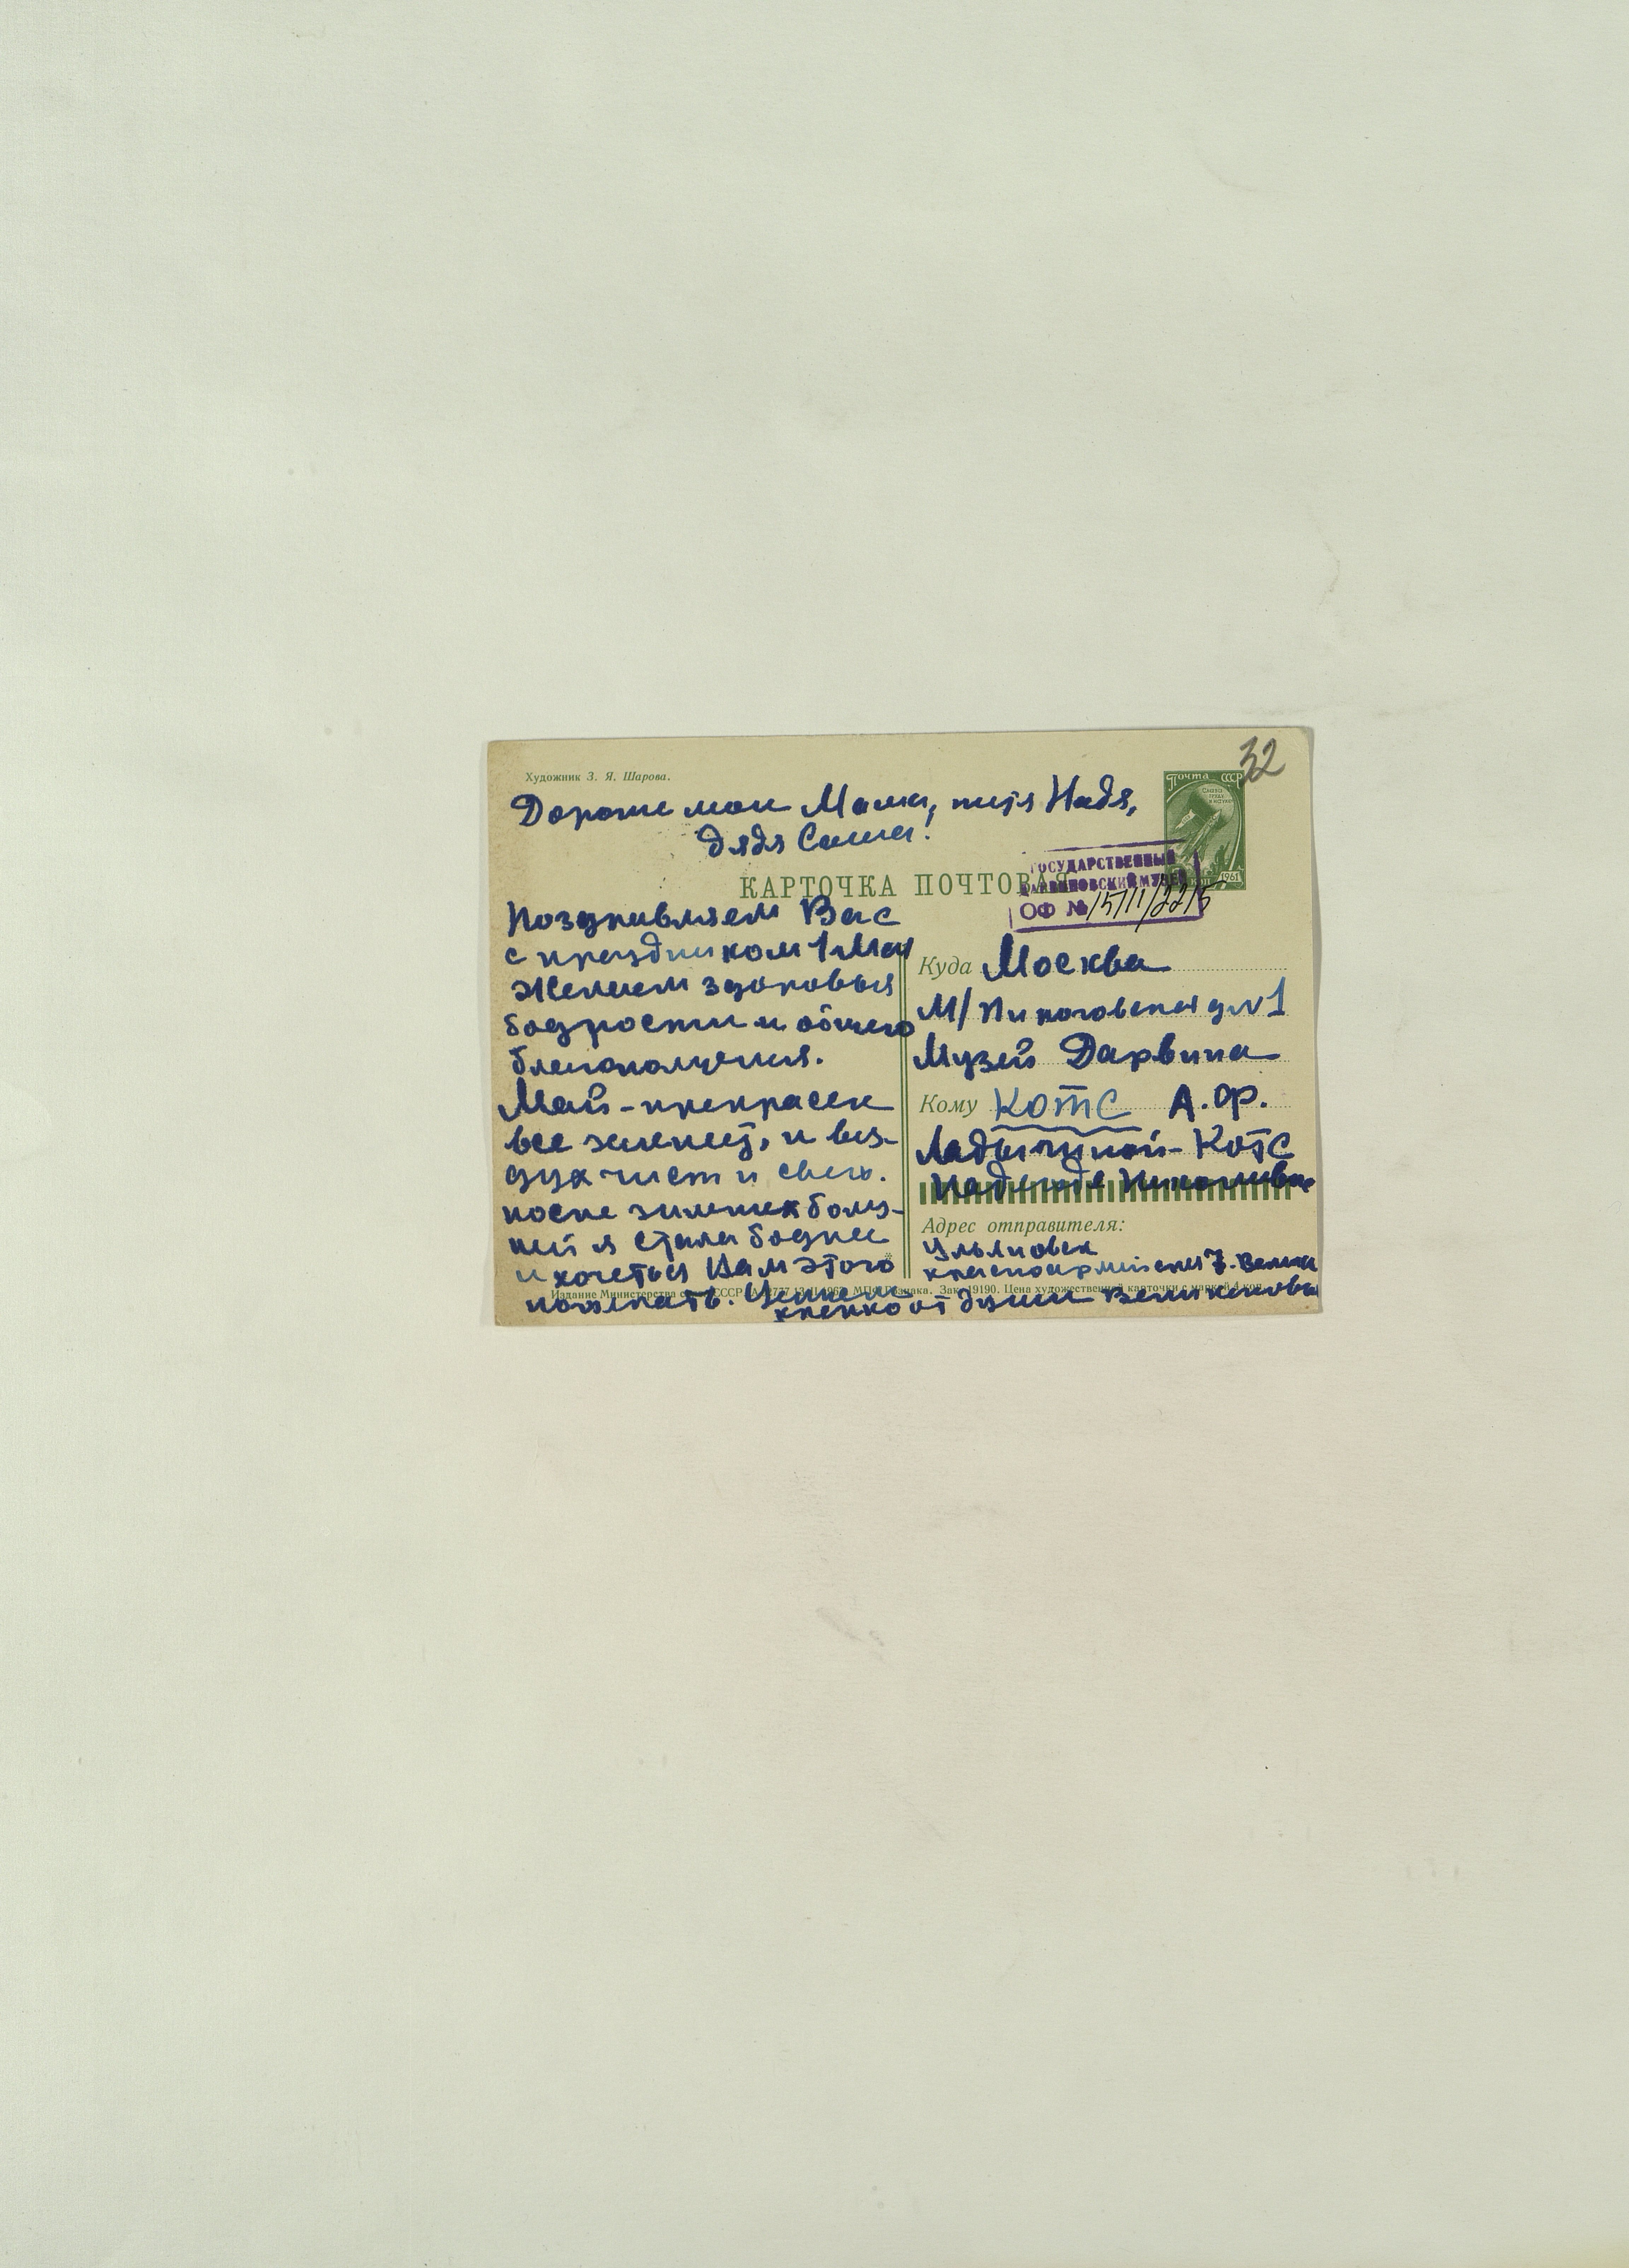 32
Художник З. Я. Шарова.
Почта СССР
1961
Дорогие мои Мама, тётя Надя,
дядя Саша!
КАРТОЧКА ПОЧТОВАЯ
ГОСУДАРСТВЕННЫЙ
ДАРВИНОВСКИЙ МУЗЕЙ
ОФ №
Поздравляем Вас
с праздником 1 Мая
Желаем здоровья
бодрости и общего
благополучия.
Май - прекрасен
все зеленеет, и воз-
дух чист и свеж.
после зимних болез-
ней я стала бодрее
и хочеться Вам этого
пожелать. Целуем
крепко от души Великановы
Куда Москва
М/Пироговская д №1
Музей Дарвина
Кому КОТС А.Ф.
Ладыгиной-Котс
Надежде Николаевне
Адрес отправителя:
Ульяновск
Красноармейская 7.
Издание Министерства СССР Зак. 19190. Цена художественной карточки с маркой 4 коп.